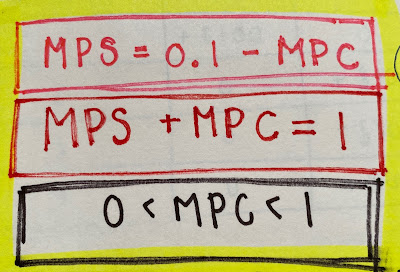 MPS = 0.1 - MPC
MPS + MPC = 1
0 < MPC < 1